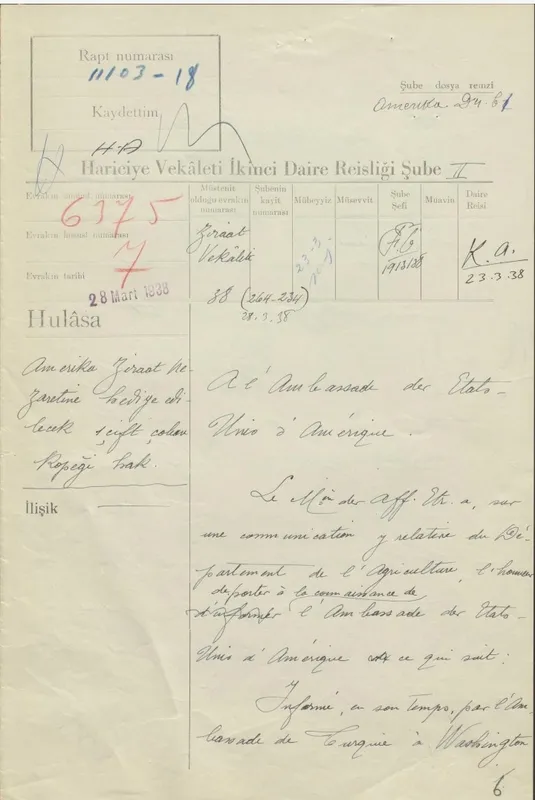 Rapt numarası
11103-18
Kaydettim
Şube dosya remzi
Amerika Dy. 61
Hariciye Vekâleti İkinci Daire Reisliği Şube II
Evrakın umumî numarası
6375
Evrakın hususî numarası
7
Evrakın tarihi
28 Mart 1938
Müstenit olduğu evrakın numarası
Ziraat
Vekâleti
38 (264-234)
28.3.38
Şubenin kayit numarası
Mübeyyiz
23-3-
Müsevvit
Şube Şefi
19/3/38
Muavin
Daire Reisi
K.a.
23.3.38
Hulâsa
Amerika Ziraat Ne-
zaretine hediye edi-
lecek 1 çift çoban
köpeği hak.
İlişik
A l'Ambassade des Etats-
Unis d'Amérique.
Le Mon des Aff. Etr. a, sur
une communication y relative du Dé-
partement de l'Agriculture, l'honneur
de porter à la connaissance de
d'informer l'Ambassade des Etats-
Unis d'Amérique ce qui suit:
Informé, en son temps, par l'Am-
bassade de Turquie à Washington
6